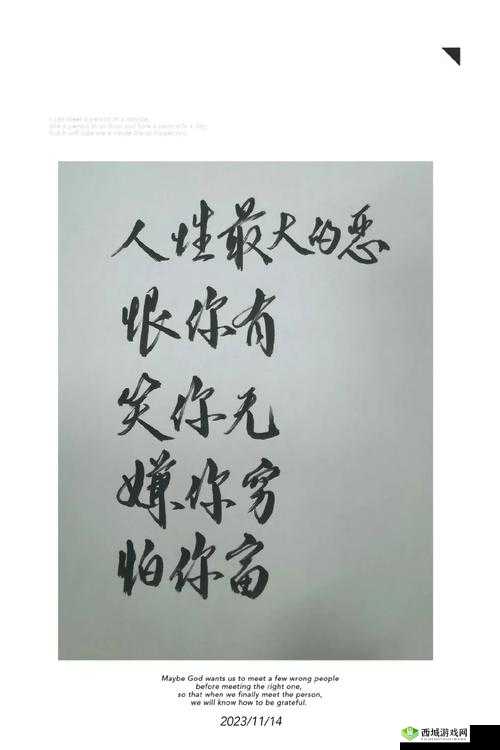 人性最大的恶
恨你有
笑你无
嫌你穷
怕你富
Maybe God wants us to meet a few wrong people
before meeting the right one,
so that when we finally meet the person,
we will know how to be grateful.
2023/11/14
西城游戏网